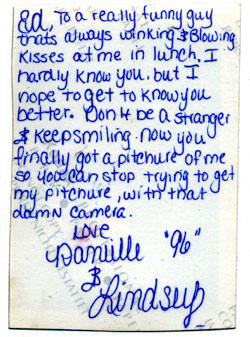 Ed, To a really funny guy
thats always winking & Blowing
kisses at me in lunch. I
hardly know you, but I
hope to get to know you
better. Don't be a stranger
& keep smiling. now you
finally got a pitchure of me
so you can stop trying to get
my pitchure, with that
damn camera.
Love
Danielle "96"
&
Lindsey